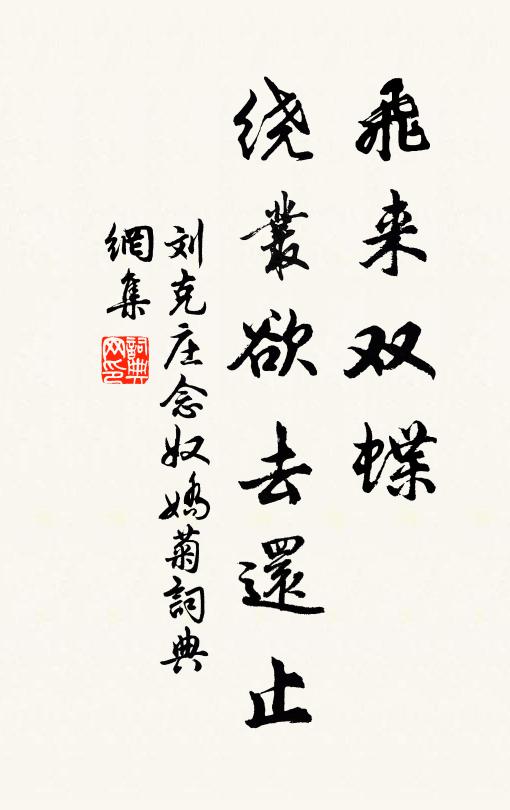 飛来双蝶
绕叢欲去還止
刘克庄念奴嬌菊詞典
網集
詞典
网印